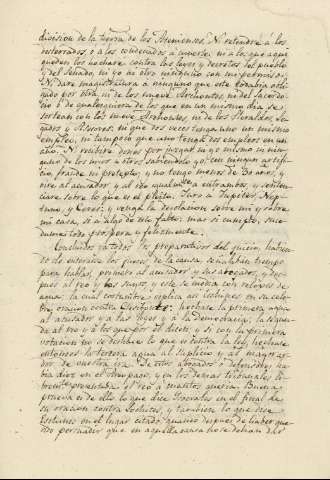 division de la tierra de los Atenienses. Ni retendré á los
desterrados, ó á los condenados a muerte; ni á los que aqui
queden los hechare contra las leyes y decretos del pueblo
y del Senado, ni yo ni otro ninguno con mi permiso.
Ni daré magistratura á ninguno que este todavia obli-
gado por otra, ni de los nueve Archontes, ni del Sacerdo-
cio ó de qualesquiera de los que en un mismo dia se
sortean con los nueve Archontes, ni de los Heraldos, Le-
gados y Asesores; ni que dos veces tenga uno un mismo
empleo, ni tampoco que uno tenga dos empleos en un
año. Ni recibire dones por juzgar ni yo mismo ni nin-
guno de los mios u otros sabiendolo yo, con ningun artifi-
cio, fraude ni pretexto, y no tengo menos de 30 años, y
oire al acusador y al reo qualmente entrambos, y senten-
ciare sobre lo que es el pleito. Juro á Jupiter, Nep-
tuno y Ceres; y venga la desolacion sobre mi y sobre
mi casa, si á algo de esto falto; mas si cumplo, suc-
danme todo prospera y felizmente.
Concluidos ya todos los preparativos del juicio, habien-
do de enterarse los jueces de la causa, señalaban tiempo
para hablar, primero al acusador y sus abogados, y des-
pues al reo y los suyos, y este se media con reloxes de
agua: la qual costumbre explica asi Eschines en su cele-
bre oracion contra Ctesiphonte: hechase la primera agua
al acusador y á las leyes y á la democracia, la segun-
da al reo y á los que por él dicen; y si con la primera
votacion no se deshace lo que es contra la ley, hechase
entonces la tercera agua al suplicio y al mayor ar-
dor de vuestra ira. De estos abogados ó defensores ha-
bia diez en el Areopago, y en los demas tribunales li-
bremente presentaba el reo á quantos queria. Buena
prueva es de ello lo que dice Isocrates en el final de
su oracion contra Lochites; y tambien lo que dice
Eschines en el lugar citado quando despues de haber que-
rido persuadir que en aquella causa no se debian dar